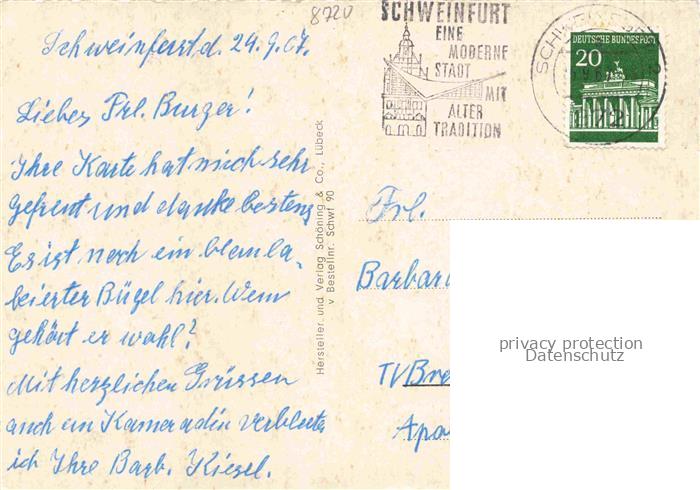 8720
SCHWEINFURT
EINE
MODERNE
STADT
MIT
ALTER
TRADITION
DEUTSCHE BUNDESPOST
20
Schweinfurt d. 24.9.67.
Liebes Frl. Burger!
Ihre Karte hat mich sehr
gefreut und danke bestens
Es ist noch ein blaula,
beierter Bügel hier. Wem
gehört er wohl?
Mit herzlichen Grüssen
auch an Kameradin verbleibe
ich Ihre Barb. Kiesel.
Hersteller und Verlag Schöning & Co., Lübeck
v Bestellnr. Schwf 90
Frl.
Barbara
TV Bre
Apo
privacy protection
Datenschutz